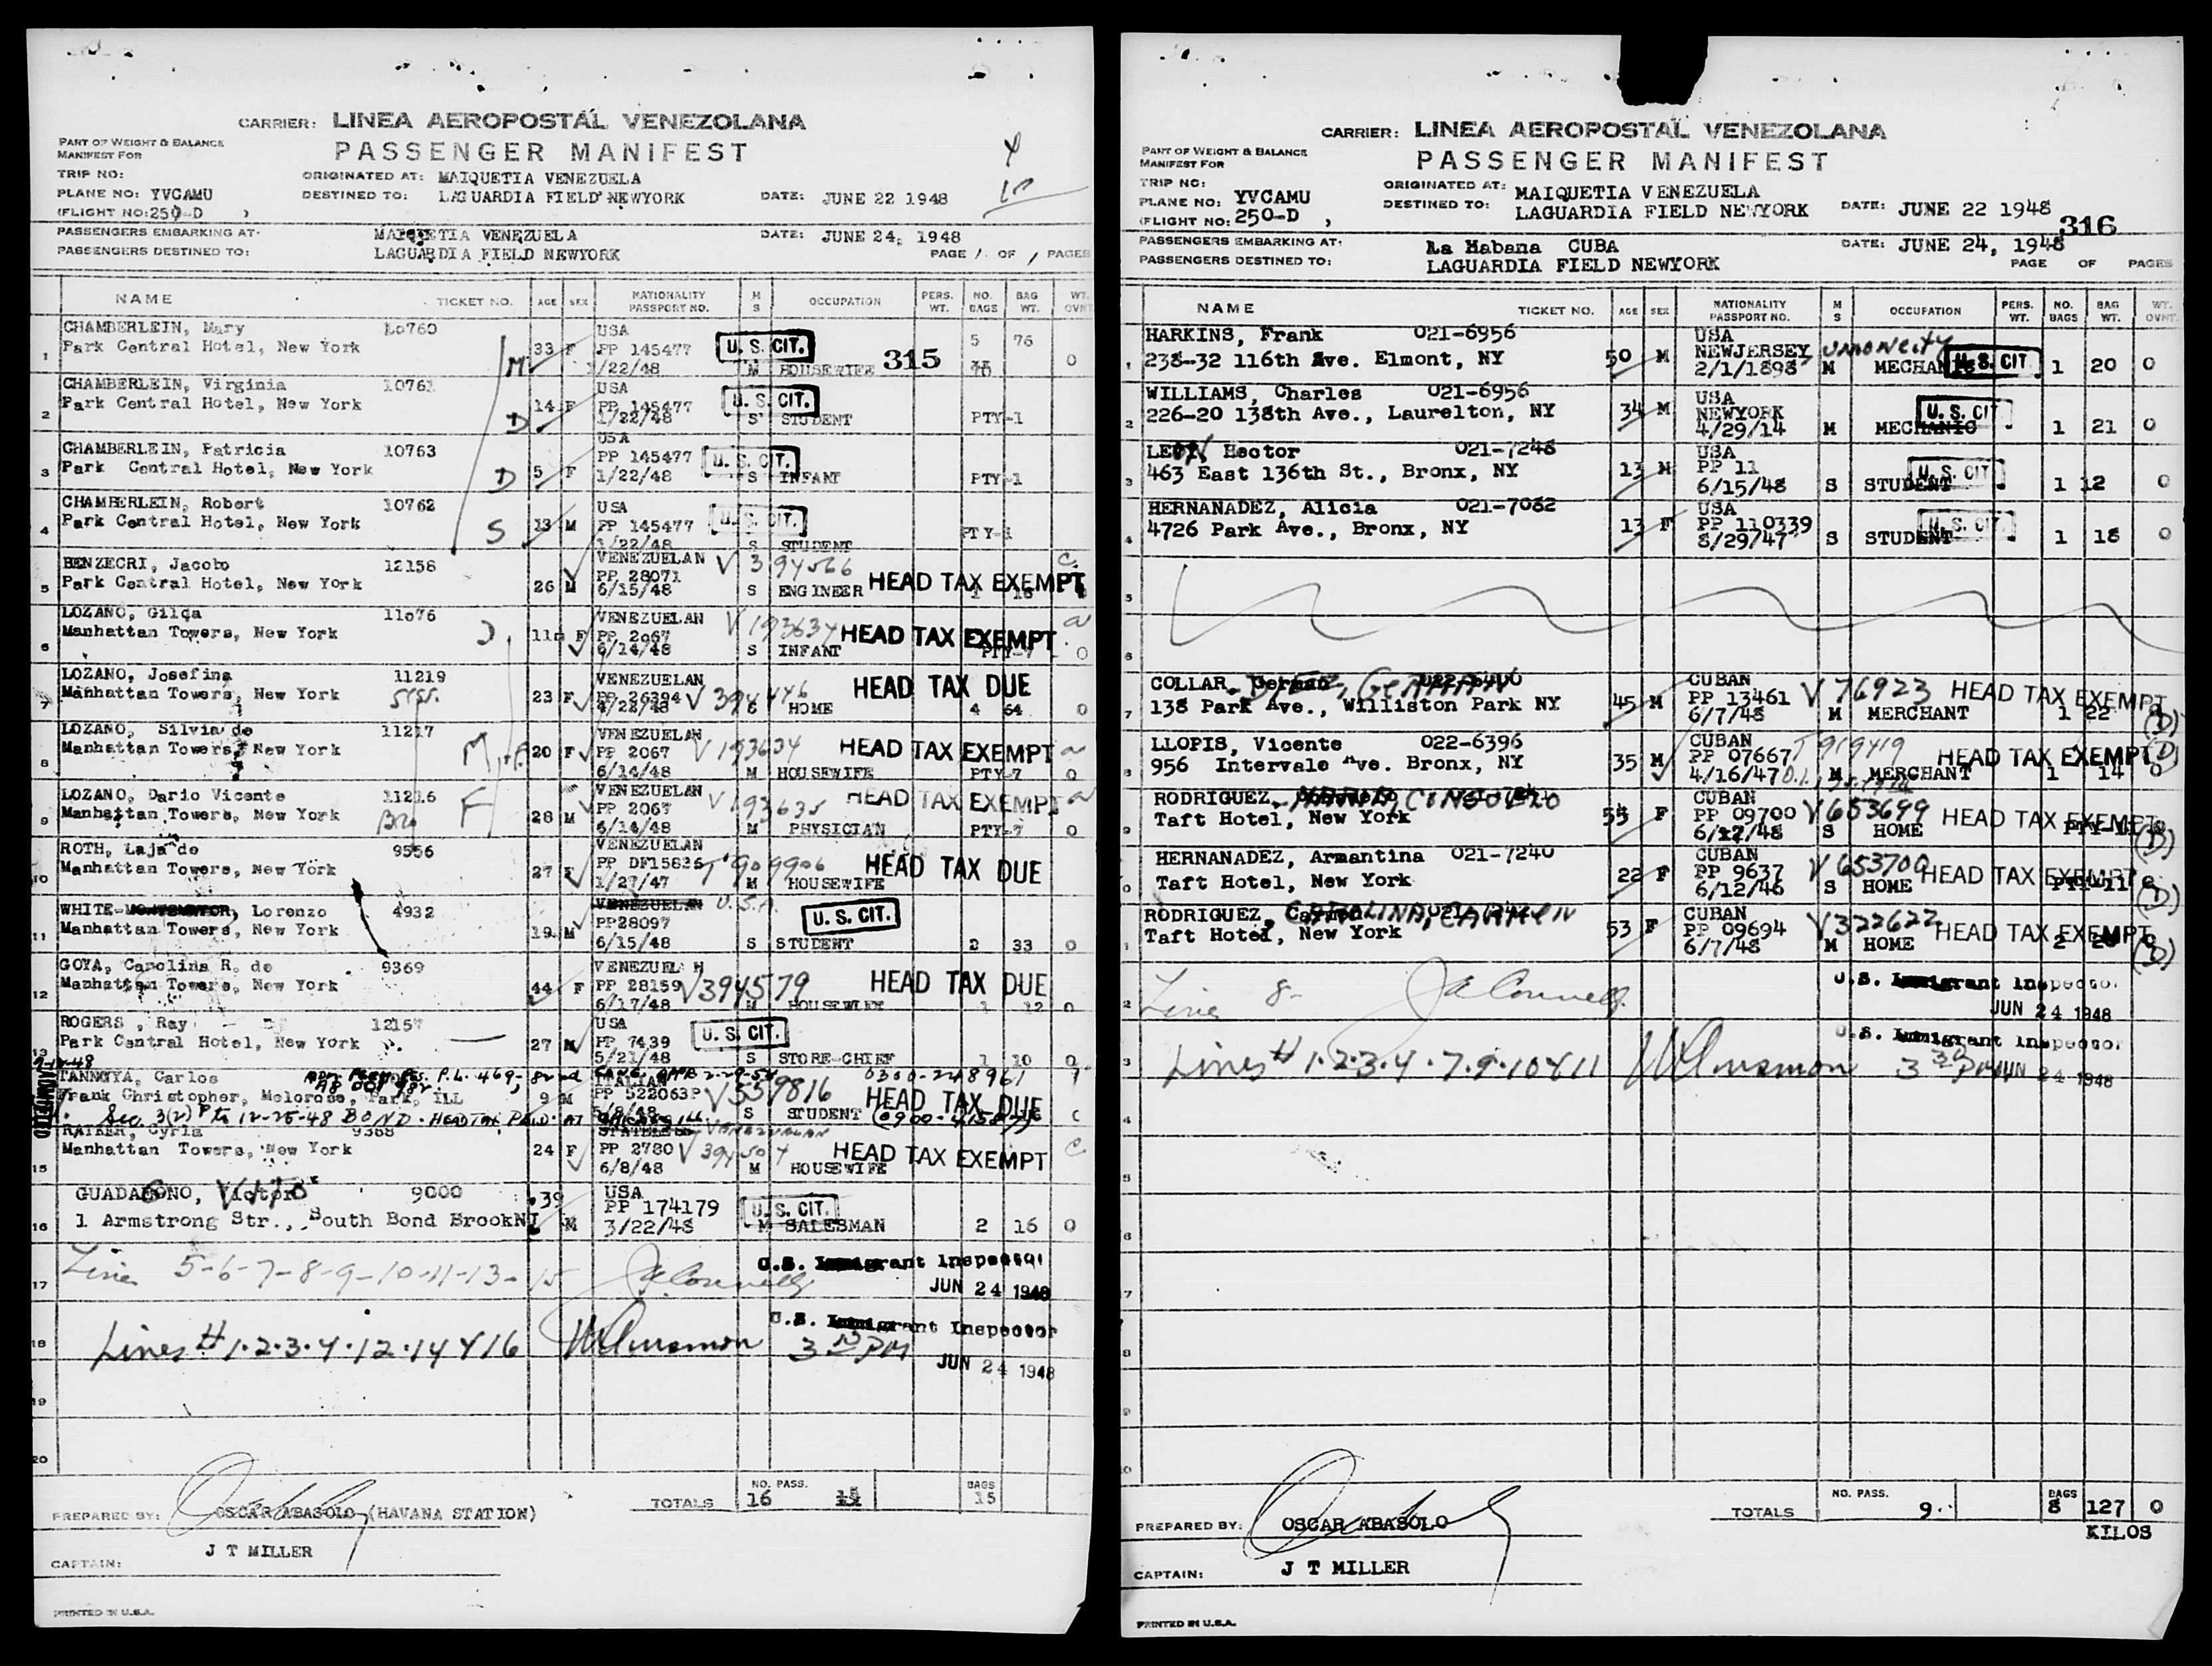 CARRIER: LINEA AEROPOSTAL VENEZOLANA
PART OF WEIGHT & BALANCE
MANIFEST FOR
PASSENGER MANIFEST
TRIP NO:
ORIGINATED AT: MAIQUETIA VENEZUELA
PLANE NO: YVCAMU
DESTINED TO: LAGUARDIA FIELD NEWYORK
DATE: JUNE 22 1948
(FLIGHT NO: 250-D )
PASSENGERS EMBARKING AT: MAIQUETIA VENEZUELA
DATE: JUNE 24, 1948
PASSENGERS DESTINED TO: LAGUARDIA FIELD NEWYORK
PAGE 1 OF 1 PAGES
NAME TICKET NO. AGE SEX NATIONALITY PASSPORT NO. M S OCCUPATION PERS. WT. NO. BAGS BAG WT. WT. OVNT.
1 CHAMBERLEIN, Mary 10760 USA
Park Central Hotel, New York M 33 F PP 145477 U. S. CIT. 315 5 76 0
1/22/48 M HOUSEWIFE
2 CHAMBERLEIN, Virginia 10761 USA
Park Central Hotel, New York D 14 F PP 145477 U. S. CIT.
1/22/48 S STUDENT PTY-1
3 CHAMBERLEIN, Patricia 10763 USA
Park Central Hotel, New York D 5 F PP 145477 U. S. CIT.
1/22/48 S INFANT PTY-1
4 CHAMBERLEIN, Robert 10762 USA
Park Central Hotel, New York S 13 M PP 145477 U. S. CIT.
1/22/48 S STUDENT PTY-1
5 BENZECRI, Jacobo 12158 VENEZUELAN V 394566
Park Central Hotel, New York 26 M PP 28071 HEAD TAX EXEMPT
6/15/48 S ENGINEER
6 LOZANO, Gilda 11076 VENEZUELAN V 193634
Manhattan Towers, New York 11 F PP 2067 HEAD TAX EXEMPT
6/14/48 S INFANT PTY-7 0
7 LOZANO, Josefina 11219 VENEZUELAN
Manhattan Towers, New York 23 F PP 26394 V 394446 HEAD TAX DUE
4/22/48 S HOME 4 64 0
8 LOZANO, Silvia de 11217 VENEZUELAN
Manhattan Towers, New York 20 F PP 2067 V 193634 HEAD TAX EXEMPT
6/14/48 M HOUSEWIFE PTY-7 0
9 LOZANO, Dario Vicente 11216 VENEZUELAN
Manhattan Towers, New York Bro F 28 M PP 2067 V 193635 HEAD TAX EXEMPT
6/14/48 M PHYSICIAN PTY-7 0
10 ROTH, Laja de 9556 VENEZUELAN
Manhattan Towers, New York 27 F PP DF15836 T 909906 HEAD TAX DUE
1/27/47 M HOUSEWIFE
11 WHITE Lorenzo 4932 VENEZUELAN U.S.A.
Manhattan Towers, New York 19 M PP28097 U. S. CIT.
6/15/48 S STUDENT 2 33 0
12 GOYA, Carolina R. de 9369
Manhattan Towers, New York 44 F PP 28159 V394579 HEAD TAX DUE
6/17/48 M HOUSEWIFE 1 12 0
13 ROGERS, Ray 12157 USA
Park Central Hotel, New York 27 M PP 7439 U. S. CIT.
5/21/48 S STORE-CHIEF 1 10 0
IANNOYA, Carlos ITALIAN 0300-248961
Frank Christopher, Melorose, Park, ILL 9 M PP 522063P V559816 HEAD TAX DUE
Sec. 3(2) to 12-25-48 BOND. HEAD TAX PAID AT S STUDENT
ADMITTED
15 RAIBER, Cyrla 9388 STATELESS VENEZUELAN
Manhattan Towers, New York 24 F PP 2780 V 394504 HEAD TAX EXEMPT
6/8/48 M HOUSEWIFE
16 GUADAGONO, Victor Vito 9000 39 USA
1 Armstrong Str., South Bond BrookNJ M PP 174179 U. S. CIT.
3/22/48 M SALESMAN 2 16 0
17 Line 5-6-7-8-9-10-11-13-15 U.S. Immigrant Inspector
JUN 24 1948
18 Lines # 1.2.3.4.12.14 Y 16 U.S. Immigrant Inspector
3 PM JUN 24 1948
19
20
TOTALS NO. PASS. 16 15 BAGS 15
PREPARED BY: OSCAR ABASOLO (HAVANA STATION)
CAPTAIN: J T MILLER
PRINTED IN U.S.A.
CARRIER: LINEA AEROPOSTAL VENEZOLANA
PART OF WEIGHT & BALANCE
MANIFEST FOR
PASSENGER MANIFEST
TRIP NO:
ORIGINATED AT: MAIQUETIA VENEZUELA
PLANE NO: YVCAMU
DESTINED TO: LAGUARDIA FIELD NEWYORK
DATE: JUNE 22 1948
(FLIGHT NO: 250-D )
316
PASSENGERS EMBARKING AT: La Habana CUBA
DATE: JUNE 24, 1948
PASSENGERS DESTINED TO: LAGUARDIA FIELD NEWYORK
PAGE OF PAGES
NAME TICKET NO. AGE SEX NATIONALITY PASSPORT NO. M S OCCUPATION PERS. WT. NO. BAGS BAG WT. WT. OVNT.
1 HARKINS, Frank 021-6956 USA
238-32 116th Ave. Elmont, NY 50 M NEWJERSEY union city
2/1/1898 M MECHANIC U. S. CIT. 1 20 0
2 WILLIAMS, Charles 021-6956 USA
226-20 138th Ave., Laurelton, NY 34 M NEWYORK U. S. CIT.
4/29/14 M MECHANIC 1 21 0
3 LEON Hector 021-7248 USA
463 East 136th St., Bronx, NY 13 M PP 11 U. S. CIT.
6/15/48 S STUDENT 1 12 0
4 HERNANADEZ, Alicia 021-7082 USA
4726 Park Ave., Bronx, NY 13 F PP 110339 U. S. CIT.
8/29/47 S STUDENT 1 18 0
5
6
7 COLLAR German 022-6400 CUBAN
138 Park Ave., Williston Park NY 45 M PP 13461 V 76923 HEAD TAX EXEMPT
6/7/48 M MERCHANT 1 22 (D)
8 LLOPIS, Vicente 022-6396 CUBAN
956 Intervale Ave. Bronx, NY 35 M PP 07667 T 919419 HEAD TAX EXEMPT (D)
4/16/47 M MERCHANT 1 14 0
9 RODRIGUEZ, CONSUELO CUBAN
Taft Hotel, New York 55 F PP 09700 V653699 HEAD TAX EXEMPT
6/12/48 S HOME PTY-11 (D)
HERNANADEZ, Armantina 021-7240 CUBAN
Taft Hotel, New York 22 F PP 9637 V653700 HEAD TAX EXEMPT
6/12/46 S HOME PTY-11 (D)
RODRIGUEZ, CAROLINA, CARMEN CUBAN
Taft Hotel, New York 53 F PP 09694 V322622 HEAD TAX EXEMPT
6/7/48 M HOME (D)
Line 8- U.S. Immigrant Inspector
JUN 24 1948
Lines # 1.2.3.4.7.9.10 Y 11 U.S. Immigrant Inspector
3 30 PM JUN 24 1948
TOTALS NO. PASS. 9 BAGS 8 127 0
KILOS
PREPARED BY: OSCAR ABASOLO
CAPTAIN: J T MILLER
PRINTED IN U.S.A.